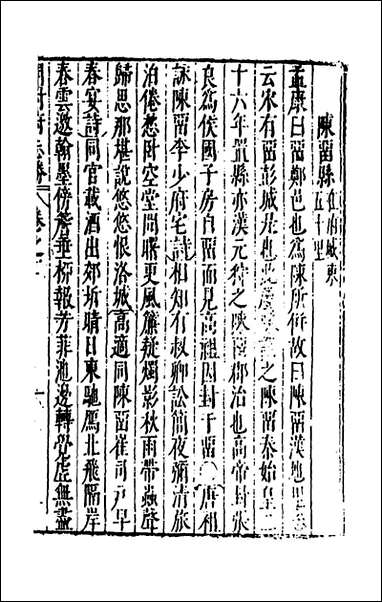 陳留縣在府城東五十里
孟康曰留鄭邑也爲陳所併故曰陳留漢地理志
云宋有留彭城是也 之陳留秦始皇二
十六年置縣亦漢元狩之陳留郡治也高帝封張
良爲侯國子房自留而見高祖因封于留 唐祖
詠陳留李少府宅詩相知有叔卿訟簡夜彌清旅
泊倦愁臥空堂聞曙更風簾疑燭影秋雨帶蟲聲
歸思那堪說悠悠恨洛城 高適同陳留崔司戶早
春宴詩同官載酒出郊圻晴日東馳雁北飛隔岸
春雲邀翰墨傍簷垂柳報芳菲池邊轉覺虛無盡